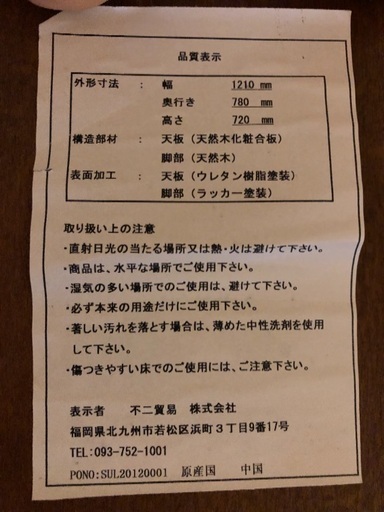 品質表示
外形寸法 : 幅 1210 mm
奥行き 780 mm
高さ 720 mm
構造部材 : 天板（天然木化粧合板）
脚部（天然木）
表面加工 : 天板（ウレタン樹脂塗装）
脚部（ラッカー塗装）
取り扱い上の注意
・直射日光の当たる場所又は熱・火は避けて下さい。
・商品は、水平な場所でご使用下さい。
・湿気の多い場所でのご使用は、避けて下さい。
・必ず本来の用途だけにご使用下さい。
・著しい汚れを落とす場合は、薄めた中性洗剤を使用
して下さい。
・傷つきやすい床でのご使用には、ご注意下さい。
表示者 不二貿易 株式会社
福岡県北九州市若松区浜町３丁目9番17号
TEL:093-752-1001
PONO:SUL20120001 原産国 中国